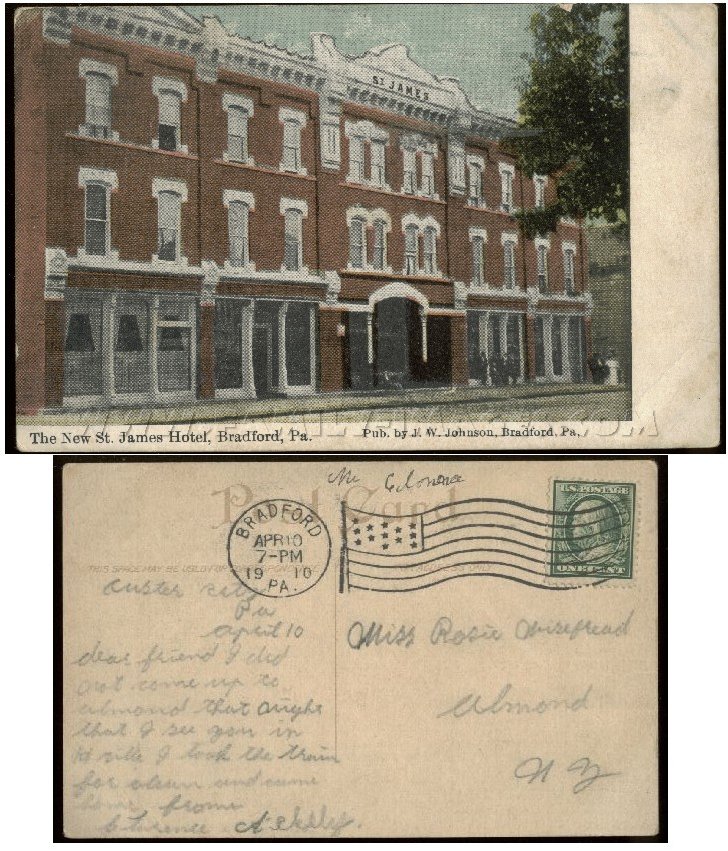 ST. JAMES
The New St. James Hotel, Bradford, Pa.
Pub. by F. W. Johnson, Bradford, Pa.
Post Card
BRADFORD
APR 10
7-PM
19 10
PA.
U.S. POSTAGE
ONE CENT
THIS SPACE MAY BE USED FOR
ADDRESS ONLY
Custer City
Pa
April 10
dear friend I did
not come up to
almond that night
that I see you in
I took the train
for olean and came
home from
Clarence
Miss Rosie
Almond
N Y